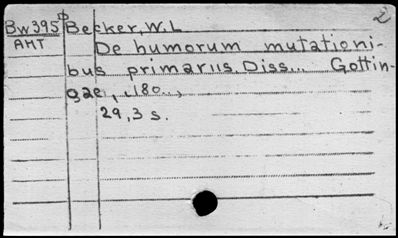 2
Bw395 Becker, W. L
AMT
De humorum mutationi-
bus primariis. Diss... Gottin-
gae, ,180..,
29,3 s.